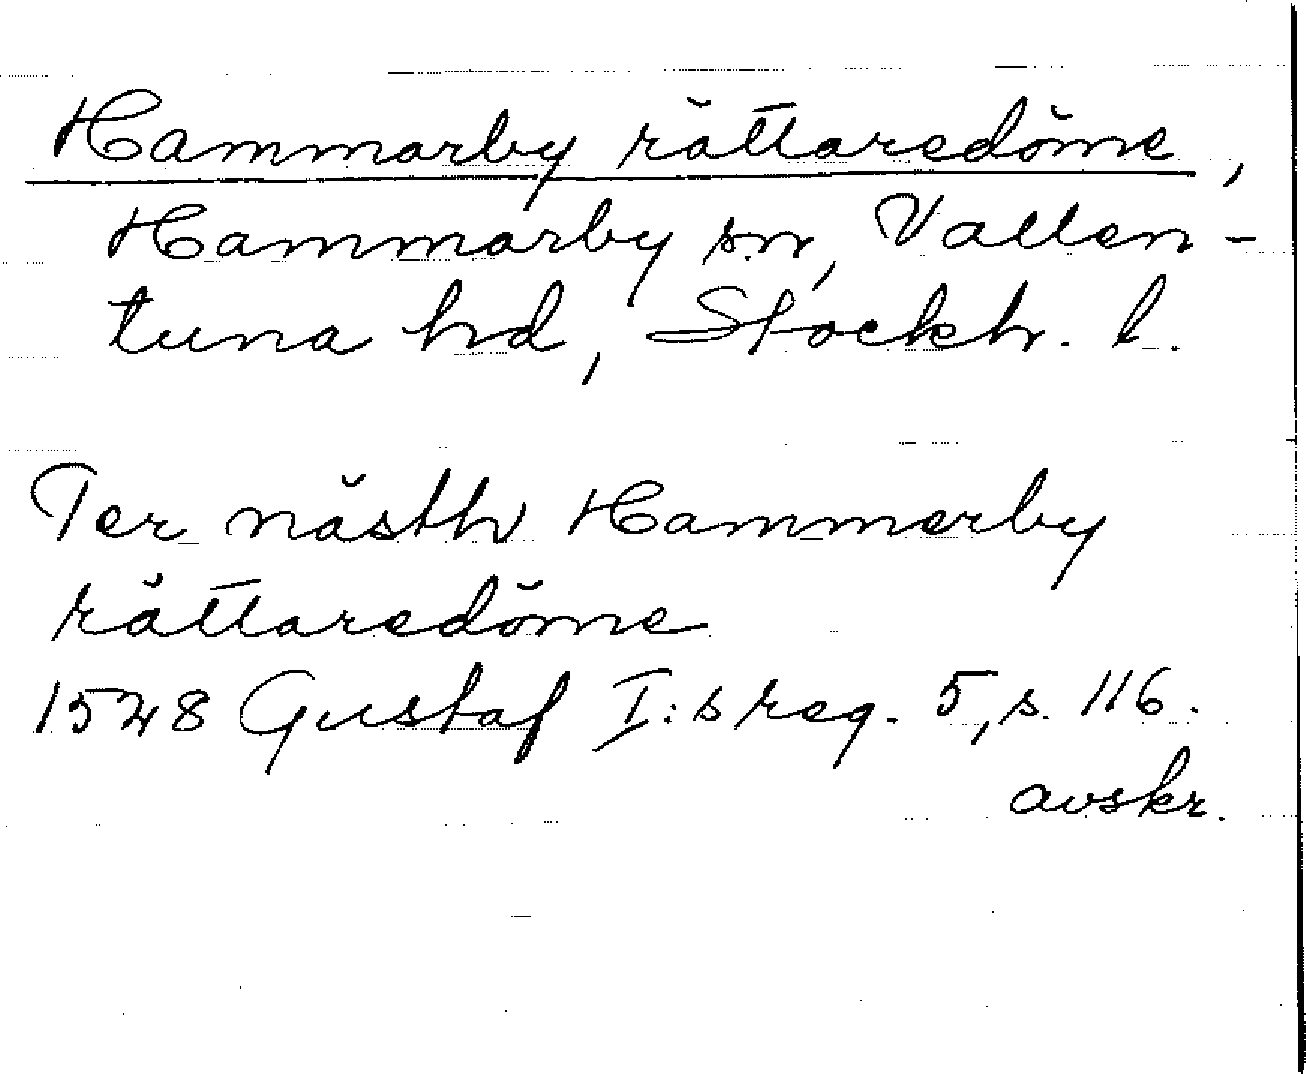 Hammarby rättaredöme,
Hammarby sn, Vallen-
tuna hd, Stockh. l.
Ter nästh Hammerby
rättaredöme
1528 Gustaf I:s reg. 5, s. 116.
avskr.